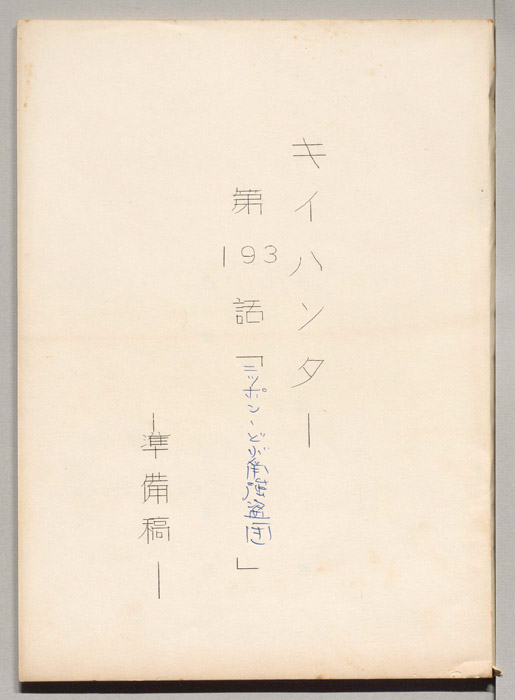 キイハンター
第193話「ニッポン・どび〓〓団」
—準備稿—